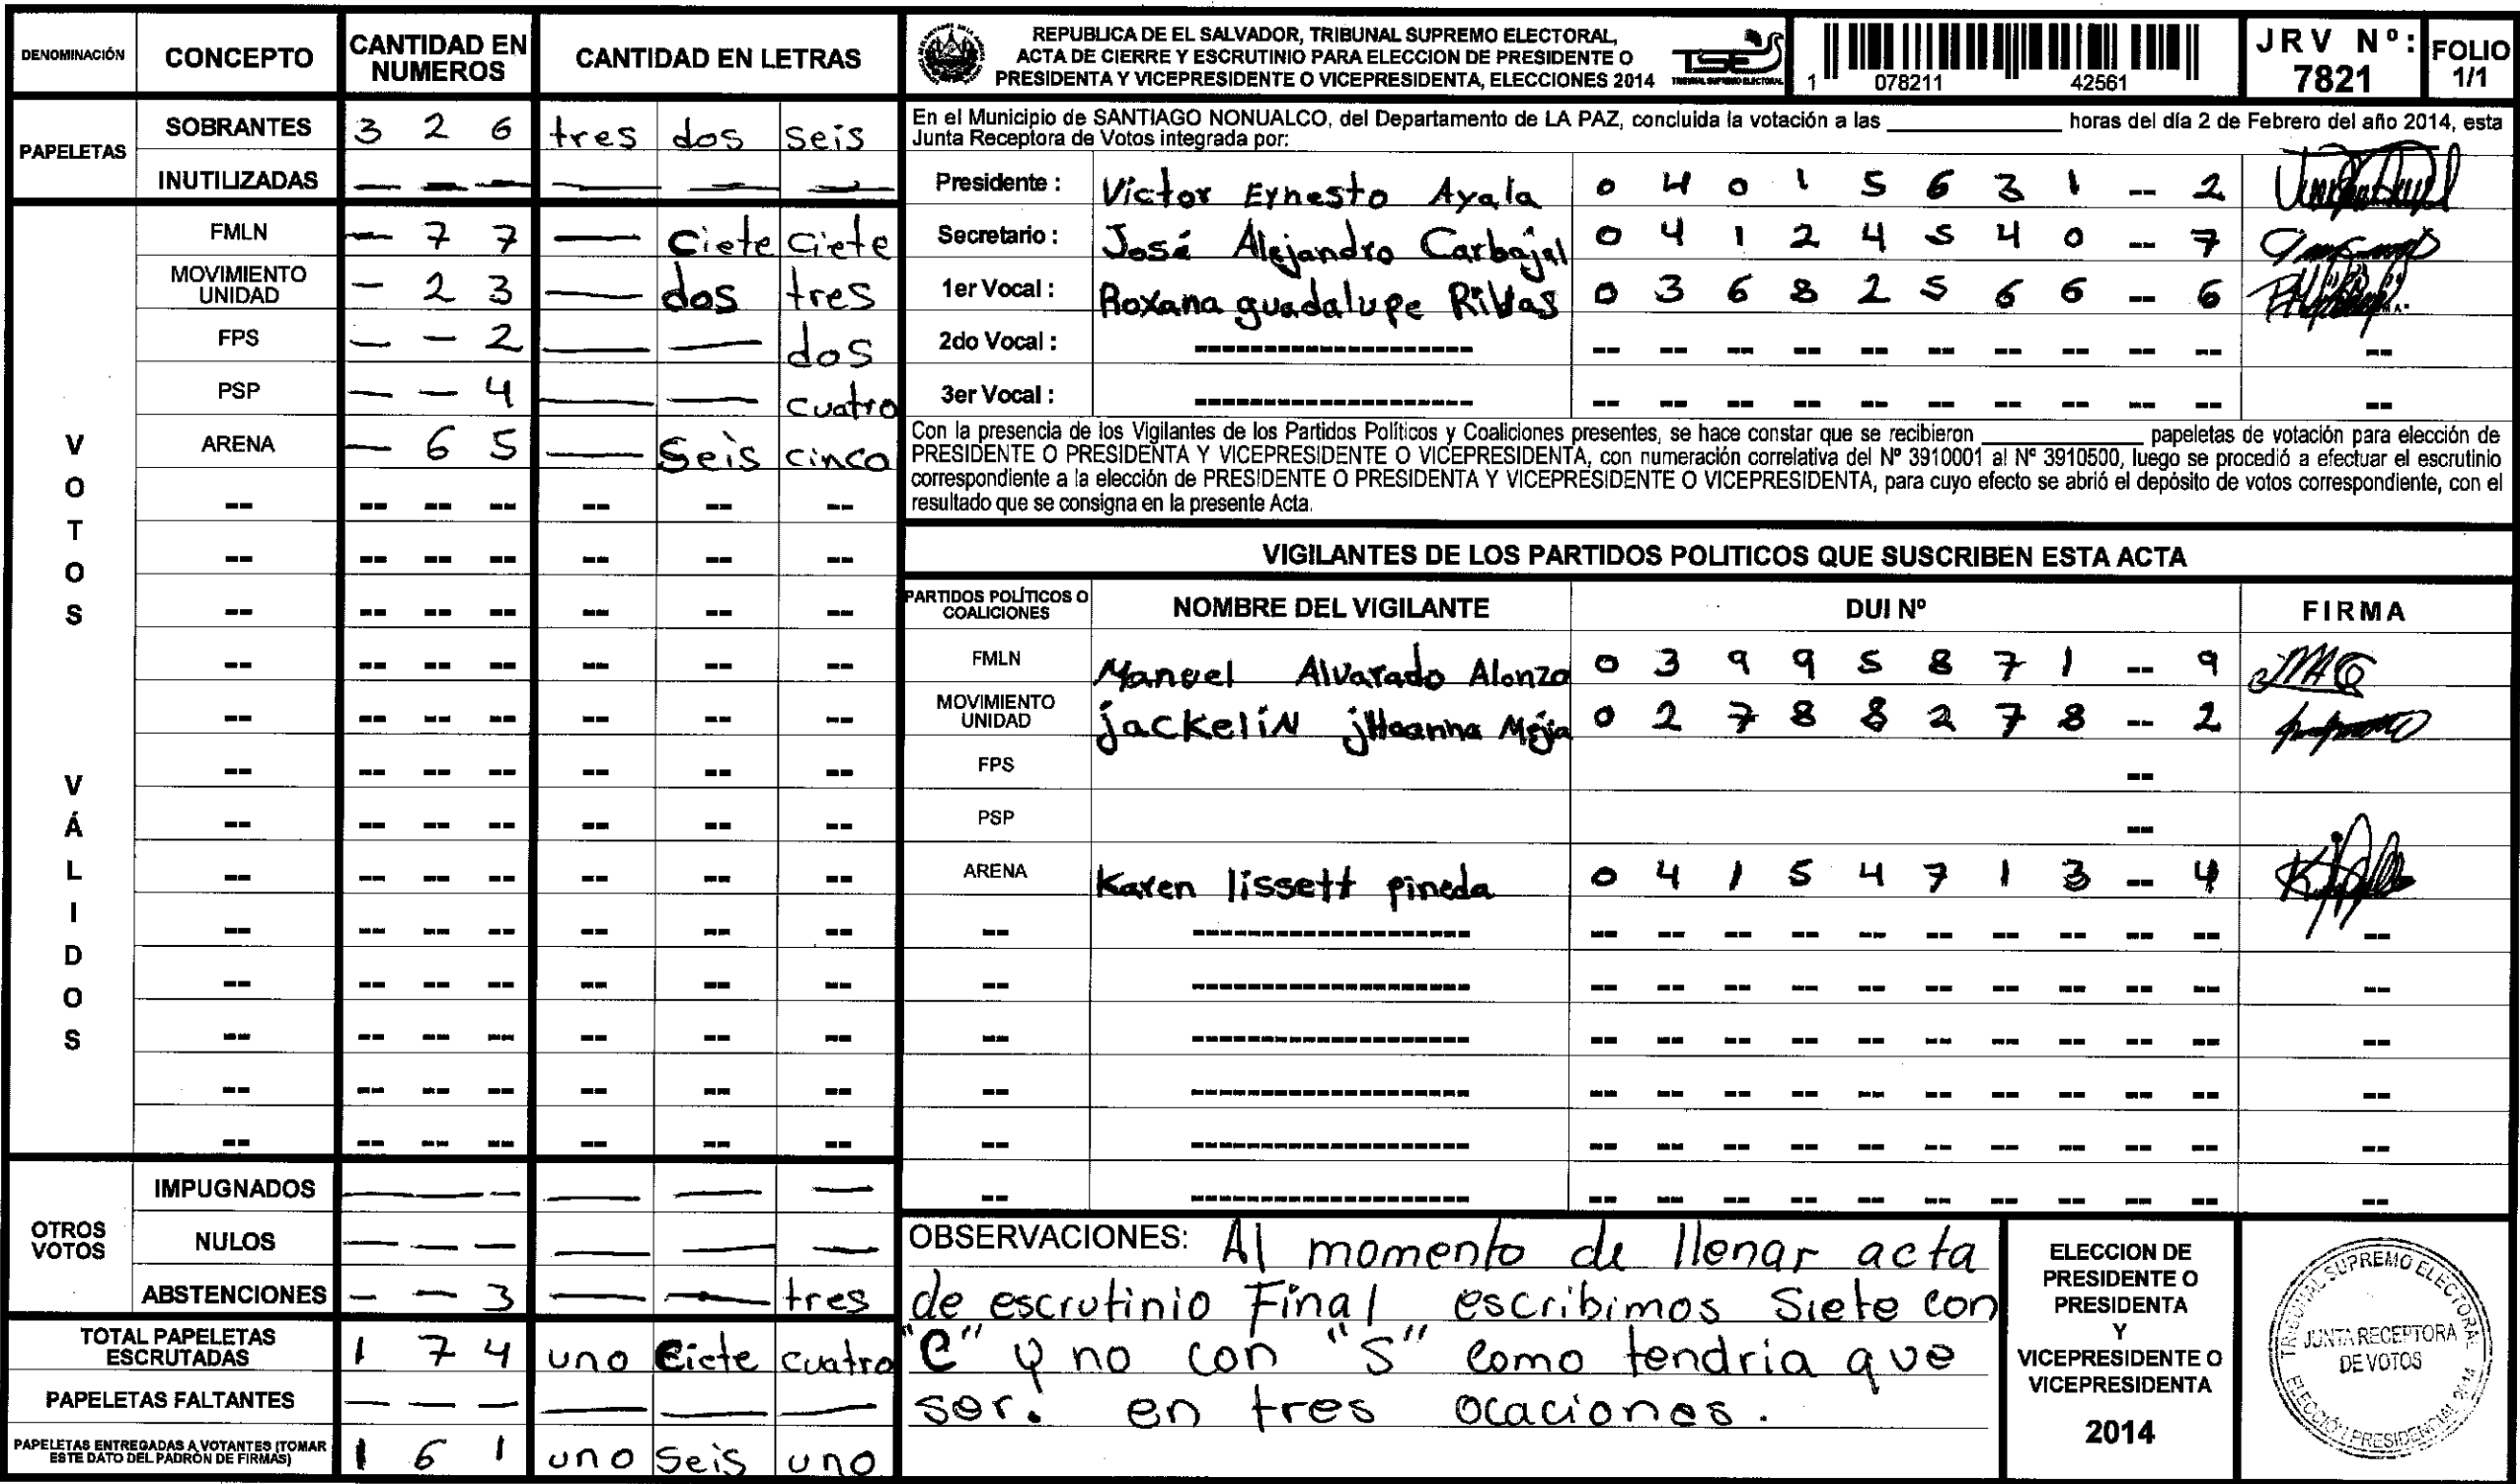 DENOMINACIÓN CONCEPTO CANTIDAD EN NUMEROS CANTIDAD EN LETRAS
PAPELETAS
SOBRANTES 3 2 6 tres dos seis
INUTILIZADAS — — — — — —
VOTOS VÁLIDOS
FMLN — 7 7 — ciete ciete
MOVIMIENTO UNIDAD — 2 3 — dos tres
FPS — — 2 — — dos
PSP — — 4 — — cuatro
ARENA — 6 5 — seis cinco
-- -- -- -- -- -- --
-- -- -- -- -- -- --
-- -- -- -- -- -- --
-- -- -- -- -- -- --
-- -- -- -- -- -- --
-- -- -- -- -- -- --
-- -- -- -- -- -- --
-- -- -- -- -- -- --
-- -- -- -- -- -- --
-- -- -- -- -- -- --
-- -- -- -- -- -- --
-- -- -- -- -- -- --
-- -- -- -- -- -- --
OTROS VOTOS
IMPUGNADOS — — — — — —
NULOS — — — — — —
ABSTENCIONES — — 3 — — tres
TOTAL PAPELETAS ESCRUTADAS 1 7 4 uno ciete cuatro
PAPELETAS FALTANTES — — — — — —
PAPELETAS ENTREGADAS A VOTANTES (TOMAR ESTE DATO DEL PADRÓN DE FIRMAS) 1 6 1 uno seis uno
REPUBLICA DE EL SALVADOR, TRIBUNAL SUPREMO ELECTORAL,
ACTA DE CIERRE Y ESCRUTINIO PARA ELECCION DE PRESIDENTE O
PRESIDENTA Y VICEPRESIDENTE O VICEPRESIDENTA, ELECCIONES 2014
TSE
TRIBUNAL SUPREMO ELECTORAL
1 078211 42561
JRV Nº: 7821
FOLIO 1/1
En el Municipio de SANTIAGO NONUALCO, del Departamento de LA PAZ, concluida la votación a las ____________ horas del día 2 de Febrero del año 2014, esta
Junta Receptora de Votos integrada por:
Presidente : Victor Ernesto Ayala 0 4 0 1 5 6 3 1 -- 2
Secretario : José Alejandro Carbajal 0 4 1 2 4 5 4 0 -- 7
1er Vocal : Roxana guadalupe Ribas 0 3 6 8 2 5 6 6 -- 6
2do Vocal : -------------------- -- -- -- -- -- -- -- -- -- -- --
3er Vocal : -------------------- -- -- -- -- -- -- -- -- -- -- --
Con la presencia de los Vigilantes de los Partidos Políticos y Coaliciones presentes, se hace constar que se recibieron ____________ papeletas de votación para elección de
PRESIDENTE O PRESIDENTA Y VICEPRESIDENTE O VICEPRESIDENTA, con numeración correlativa del Nº 3910001 al Nº 3910500, luego se procedió a efectuar el escrutinio
correspondiente a la elección de PRESIDENTE O PRESIDENTA Y VICEPRESIDENTE O VICEPRESIDENTA, para cuyo efecto se abrió el depósito de votos correspondiente, con el
resultado que se consigna en la presente Acta.
VIGILANTES DE LOS PARTIDOS POLITICOS QUE SUSCRIBEN ESTA ACTA
PARTIDOS POLÍTICOS O COALICIONES NOMBRE DEL VIGILANTE DUI Nº FIRMA
FMLN Manuel Alvarado Alonzo 0 3 9 9 5 8 7 1 -- 9
MOVIMIENTO UNIDAD jackeliN jHoanna Mejia 0 2 7 8 8 2 7 8 -- 2
FPS --
PSP --
ARENA Karen lissett pineda 0 4 1 5 4 7 1 3 -- 4
-- -------------------- -- -- -- -- -- -- -- -- -- -- --
-- -------------------- -- -- -- -- -- -- -- -- -- -- --
-- -------------------- -- -- -- -- -- -- -- -- -- -- --
-- -------------------- -- -- -- -- -- -- -- -- -- -- --
-- -------------------- -- -- -- -- -- -- -- -- -- -- --
-- -------------------- -- -- -- -- -- -- -- -- -- -- --
OBSERVACIONES: Al momento de llenar acta
de escrutinio Final escribimos Siete con
"C" y no con "S" como tendria que
ser. en tres ocaciones.
ELECCION DE
PRESIDENTE O
PRESIDENTA
Y
VICEPRESIDENTE O
VICEPRESIDENTA
2014
TRIBUNAL SUPREMO ELECTORAL
JUNTA RECEPTORA
DE VOTOS
ELECCIÓN PRESIDENCIAL 2014